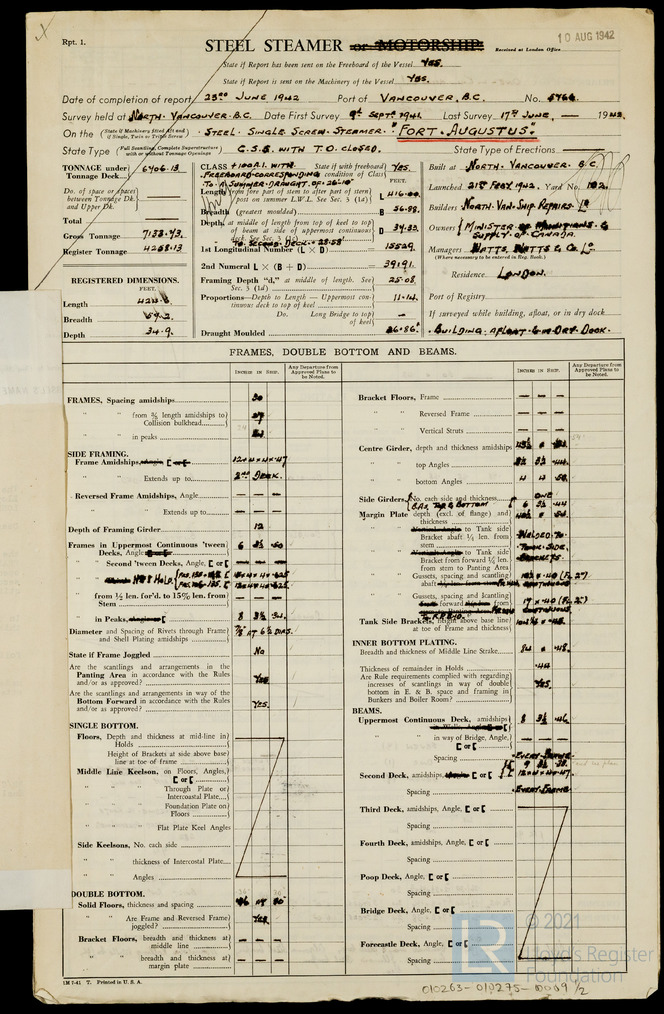 Rpt. 1.
10 AUG 1942
STEEL STEAMER or MOTORSHIP.
Received at London Office
State if Report has been sent on the Freeboard of the Vessel YES.
State if Report is sent on the Machinery of the Vessel YES.
Date of completion of report 23RD JUNE 1942 Port of VANCOUVER, B.C. No.
Survey held at NORTH VANCOUVER. B.C. Date First Survey 9th SEPTR 1941. Last Survey 17TH JUNE, 1942.
On the (State if Machinery fitted Aft and if Single, Twin or Triple Screw) STEEL. SINGLE. SCREW. STEAMER. "FORT. AUGUSTUS".
State Type (Full Scantling, Complete Superstructure with or without Tonnage Openings) C.S.S. WITH T.O. CLOSED. State Type of Erections —
TONNAGE under Tonnage Deck 6406.13
Do. of space or spaces between Tonnage Dk. and Upper Dk. —
Total —
Gross Tonnage 7133.93.
Register Tonnage 4258.13
REGISTERED DIMENSIONS.
FEET.
Length
Breadth
Depth 34.9.
CLASS +100A1. WITH FREEBOARD CORRESPONDING TO A SUMMER DRAUGHT OF 26'10" State if with freeboard condition of Class YES.
Length from fore part of stem to after part of stern post on summer L.W.L. See Sec. 3 (1a) 416.00
Breadth (greatest moulded) B 56.88.
Depth, at middle of length from top of keel to top of beam at side of uppermost continuous deck. See Sec. 3 (1c) D
TO SECOND DECK = 28.58'
1st Longitudinal Number (L × D) 15529.
2nd Numeral L × (B + D) 39191.
Framing Depth "d," at middle of length. See Sec. 3 (1d) 25.08.
Proportions—Depth to Length—Uppermost continuous deck to top of keel 11.14.
Do. Long Bridge to top of keel —
Draught Moulded 26.86'
Built at NORTH. VANCOUVER. B.C.
Launched 21ST FEBY. 1942. Yard No. 102.
Builders NORTH. VAN. SHIP. REPAIRS. LD
Owners MINISTER OF MUNITIONS & SUPPLY OF CANADA.
Managers WATTS, WATTS & CO. LD.
(Where necessary to be entered in Reg. Book.)
Residence LONDON.
Port of Registry
If surveyed while building, afloat, or in dry dock
BUILDING. AFLOAT & IN DRY. DOCK.
FRAMES, DOUBLE BOTTOM AND BEAMS.
INCHES IN SHIP.
Any Departure from Approved Plans to be Noted.
FRAMES, Spacing amidships 30
" " from ⅗ length amidships to Collision bulkhead 27
" " in peaks 24
SIDE FRAMING.
Frame Amidships, Angle [ or [ 12 × 4 × 4 × .47
" " Extends up to 2ND DECK.
Reversed Frame Amidships, Angle — — —
" " Extends up to — — —
Depth of Framing Girder 12
Frames in Uppermost Continuous 'tween Decks, Angle [ or [ 6 3½ .50
" Second 'tween Decks, Angle, [ or [ — — —
" " from ½ len. for'd. to 15% len. from Stem — — —
" in Peaks, Angle or [ 8 3½ .34.
Diameter and Spacing of Rivets through Frame and Shell Plating amidships ⅞" AT 6½ DIAS.
State if Frame Joggled No
Are the scantlings and arrangements in the Panting Area in accordance with the Rules and/or as approved? YES
Are the scantlings and arrangements in way of the Bottom Forward in accordance with the Rules and/or as approved? YES.
SINGLE BOTTOM.
Floors, Depth and thickness at mid-line in Holds
Height of Brackets at side above base line at toe of frame
Middle Line Keelson, on Floors, Angles, [ or [
" " Through Plate or Intercostal Plate
" " Foundation Plate on Floors
" " Flat Plate Keel Angles
Side Keelsons, No. each side
" " thickness of Intercostal Plate
" " Angles
DOUBLE BOTTOM.
Solid Floors, thickness and spacing
" " Are Frame and Reversed Frame joggled? YES.
Bracket Floors, breadth and thickness at middle line — — —
" " breadth and thickness at margin plate — — —
Bracket Floors, Frame — — —
" " Reversed Frame — — —
" " Vertical Struts — — —
Centre Girder, depth and thickness amidships
" " top Angles 3½ 3½ .44.
" " bottom Angles 4 4 .50.
Side Girders, No. each side and thickness ONE
Margin Plate depth (excl. of flange) and thickness
" " Vertical Angle to Tank side Bracket abaft ¼ len. from stem WELDED TO
" " Vertical Angle to Tank side Bracket from forward ¼ len. from stem to Panting Area TANK SIDE. BRACKETS.
" " Gussets, spacing and scantling abaft
" " Gussets, spacing and scantling forward
Tank Side Brackets, height above base line at toe of Frame and thickness
INNER BOTTOM PLATING.
Breadth and thickness of Middle Line Strake 84 × .48.
Thickness of remainder in Holds .44
Are Rule requirements complied with regarding increases of scantlings in way of double bottom in E. & B. space and framing in Bunkers and Boiler Room? YES.
BEAMS.
Uppermost Continuous Deck, amidships 8 3½ .46
" " in way of Bridge, Angle, [ or [
Spacing EVERY. FRAME
Second Deck, amidships, Angle [ or [ 12 × 4 × 4 × .47
Spacing EVERY. FRAME
Third Deck, amidships, Angle, [ or [
Spacing
Fourth Deck, amidships, Angle, [ or [
Spacing
Poop Deck, Angle, [ or [
Spacing
Bridge Deck, Angle, [ or [
Spacing
Forecastle Deck, Angle, [ or [
Spacing
1M 7-41 T. Printed in U. S. A.
LR
© 2021
Lloyd's Register
Foundation
010263-010275-0009 1/2